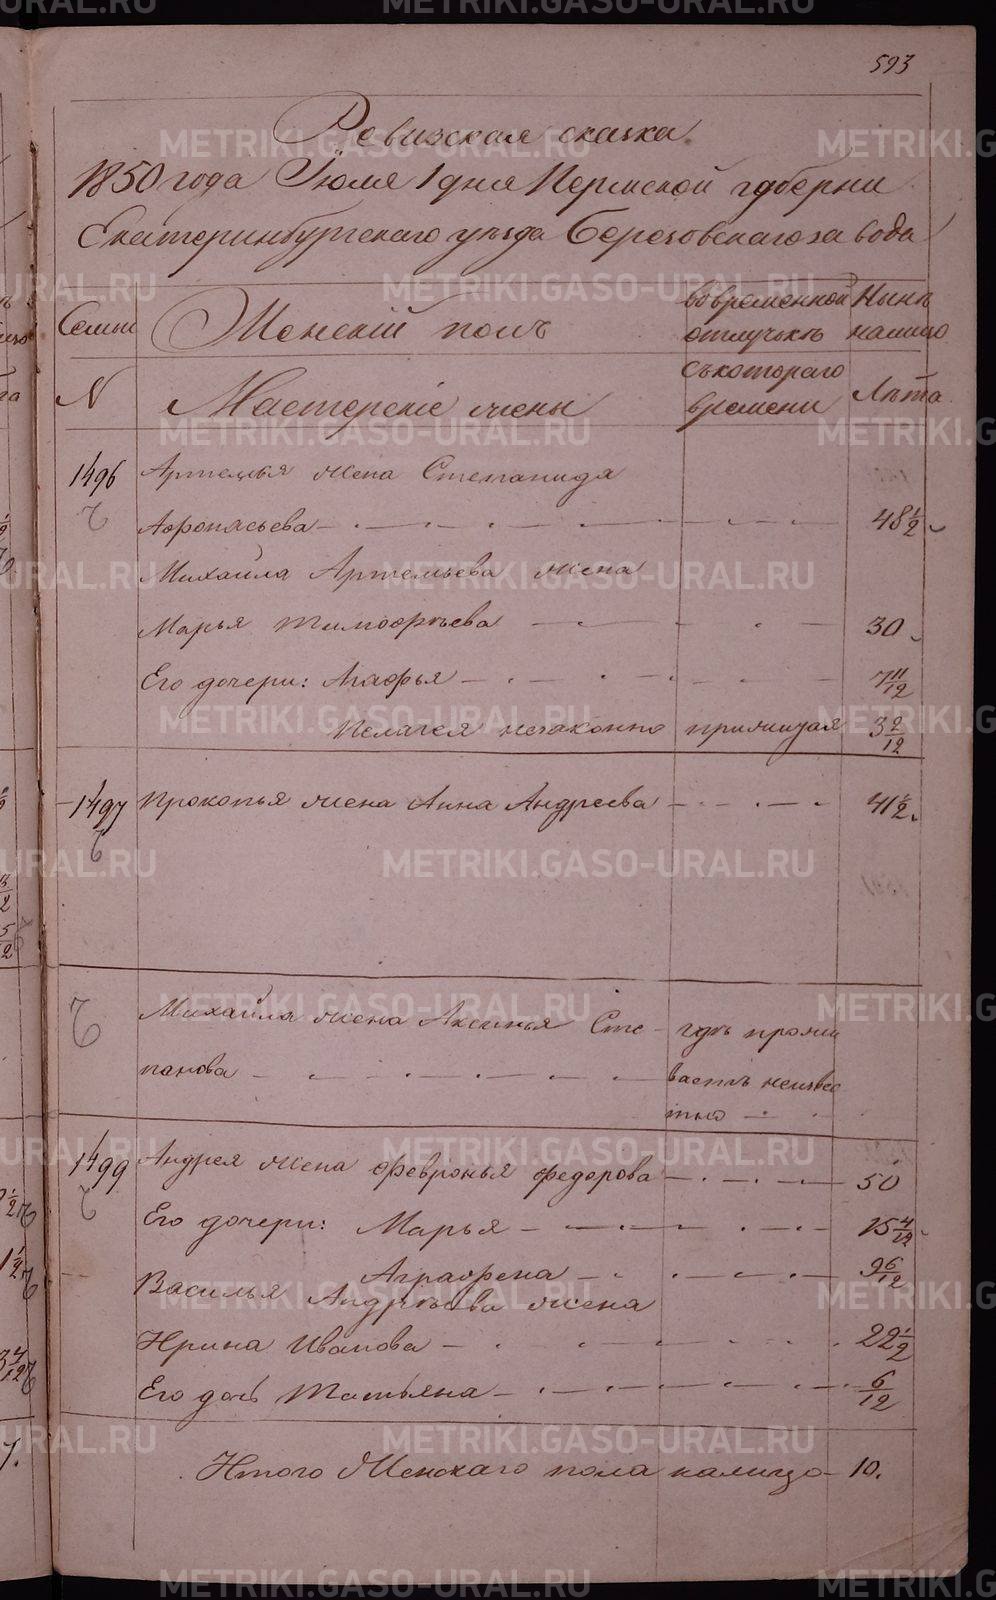 593
Ревизская сказка
1850 года Іюля 1 дня Пермской губерни
Екатеринбургскаго уезда Березовскаго завода
Семьи Женскій полъ во временной отлучкѣ Нынѣ налицо
N Мастерскіе жены съ котораго времени Лѣта
1496 Артемья жена Степанида
Афонасьева 48 1/2
Михайла Артемьева жена
Марья Тимофѣева 30
Его дочери: Агафья 7 11/12
Пелагея незаконно прижитая 3 2/12
1497 Прокопья жена Анна Андреева 41 1/2
Михайла жена Аксинья Сте- гдѣ прожи
панова ваетъ неизвес
тно
1499 Андрея жена Февронья Федорова 50
Его дочери: Марья 15 4/12
Аграфена 9 6/12
Василья Андрѣева жена
Ирина Иванова 22 1/2
Его дочь Татьяна 6/12
Итого Женскаго пола налицо 10.
METRIKI.GASO-URAL.RU